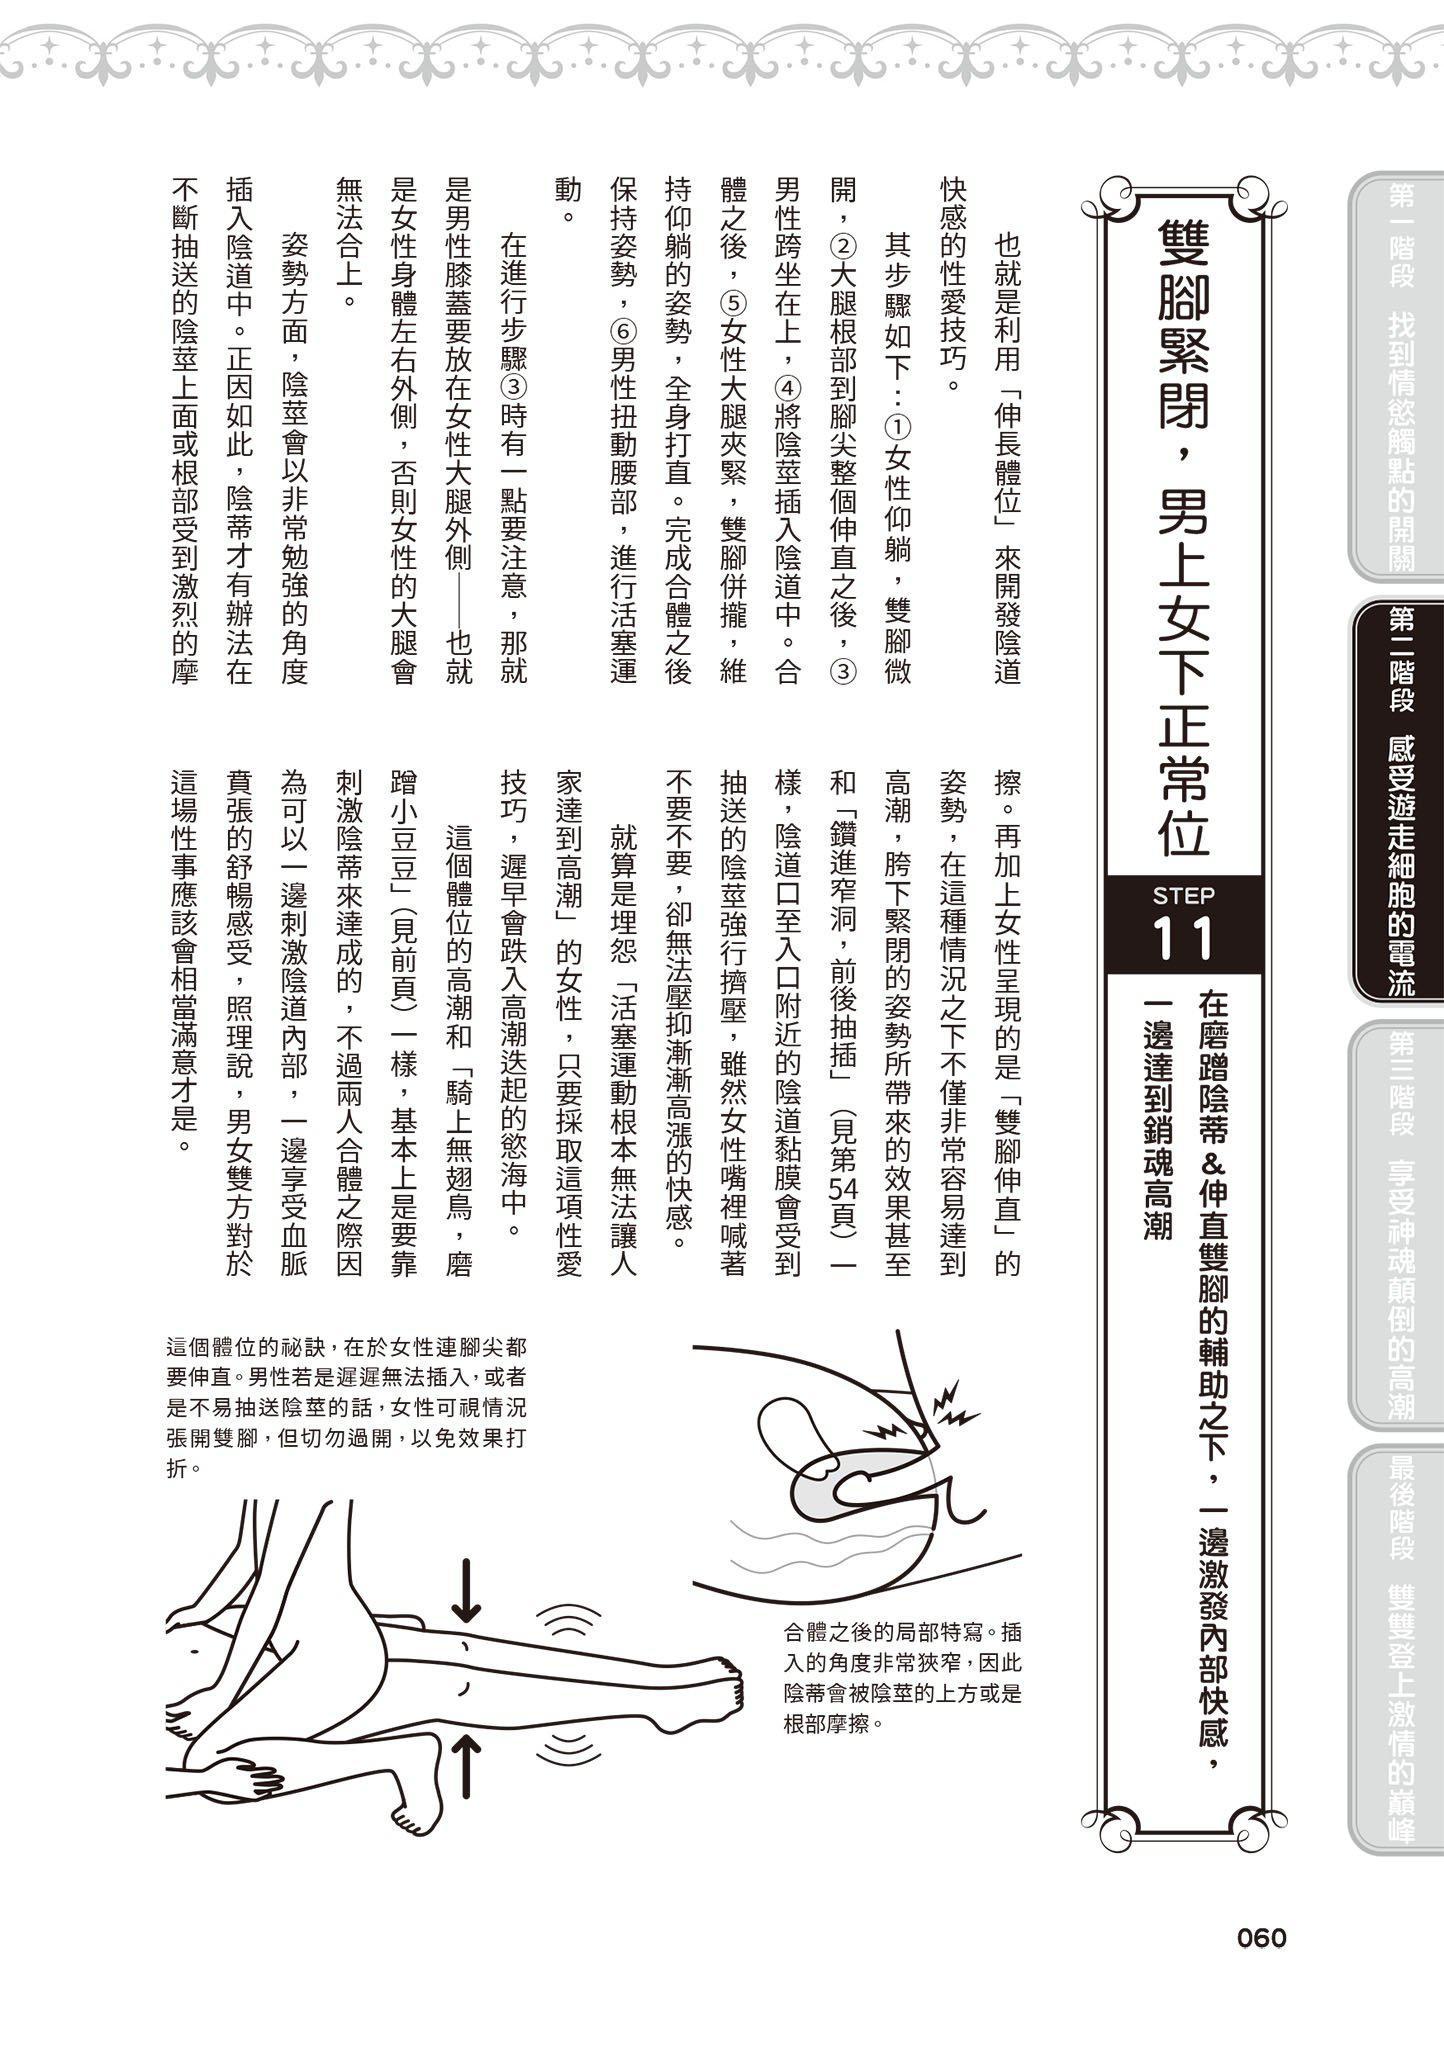 雙腳緊閉，男上女下正常位
STEP
11
在磨蹭陰蒂＆伸直雙腳的輔助之下，一邊激發內部快感，
一邊達到銷魂高潮
也就是利用「伸長體位」來開發陰道
快感的性愛技巧。
其步驟如下：①女性仰躺，雙腳微
開，②大腿根部到腳尖整個伸直之後，③
男性跨坐在上，④將陰莖插入陰道中。合
體之後，⑤女性大腿夾緊，雙腳併攏，維
持仰躺的姿勢，全身打直。完成合體之後
保持姿勢，⑥男性扭動腰部，進行活塞運
動。
在進行步驟③時有一點要注意，那就
是男性膝蓋要放在女性大腿外側——也就
是女性身體左右外側，否則女性的大腿會
無法合上。
姿勢方面，陰莖會以非常勉強的角度
插入陰道中。正因如此，陰蒂才有辦法在
不斷抽送的陰莖上面或根部受到激烈的摩
擦。再加上女性呈現的是「雙腳伸直」的
姿勢，在這種情況之下不僅非常容易達到
高潮，胯下緊閉的姿勢所帶來的效果甚至
和「鑽進窄洞，前後抽插」（見第54頁）一
樣，陰道口至入口附近的陰道黏膜會受到
抽送的陰莖強行擠壓，雖然女性嘴裡喊著
不要不要，卻無法壓抑漸漸高漲的快感。
就算是埋怨「活塞運動根本無法讓人
家達到高潮」的女性，只要採取這項性愛
技巧，遲早會跌入高潮迭起的慾海中。
這個體位的高潮和「騎上無翅鳥，磨
蹭小豆豆」（見前頁）一樣，基本上是要靠
刺激陰蒂來達成的，不過兩人合體之際因
為可以一邊刺激陰道內部，一邊享受血脈
賁張的舒暢感受，照理說，男女雙方對於
這場性事應該會相當滿意才是。
合體之後的局部特寫。插
入的角度非常狹窄，因此
陰蒂會被陰莖的上方或是
根部摩擦。
這個體位的祕訣，在於女性連腳尖都
要伸直。男性若是遲遲無法插入，或者
是不易抽送陰莖的話，女性可視情況
張開雙腳，但切勿過開，以免效果打
折。
第一階段 找到情慾觸點的開關
第二階段 感受遊走細胞的電流
第三階段 享受神魂顛倒的高潮
最後階段 雙雙登上激情的巔峰
060